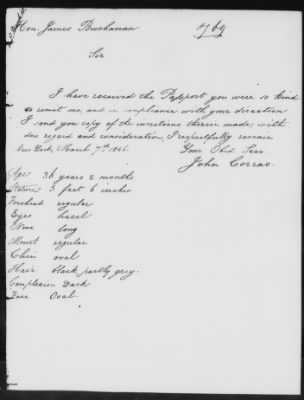 Hon. James Buchanan
4769
Sir
I have received the Passport you were so kind
to remit me, and in compliance with your direction
I send you copy of the insertions therein made, with
due regard and consideration, I respectfully remain
New York, March 7th 1846.
Your Obd. Serv.
John Corrao.
Age 36 years 2 months
Stature 5 feet 6 inches
Forehead regular
Eyes hazel
Nose long
Mouth regular
Chin oval
Hair black, partly grey.
Complexion Dark
Face Oval.